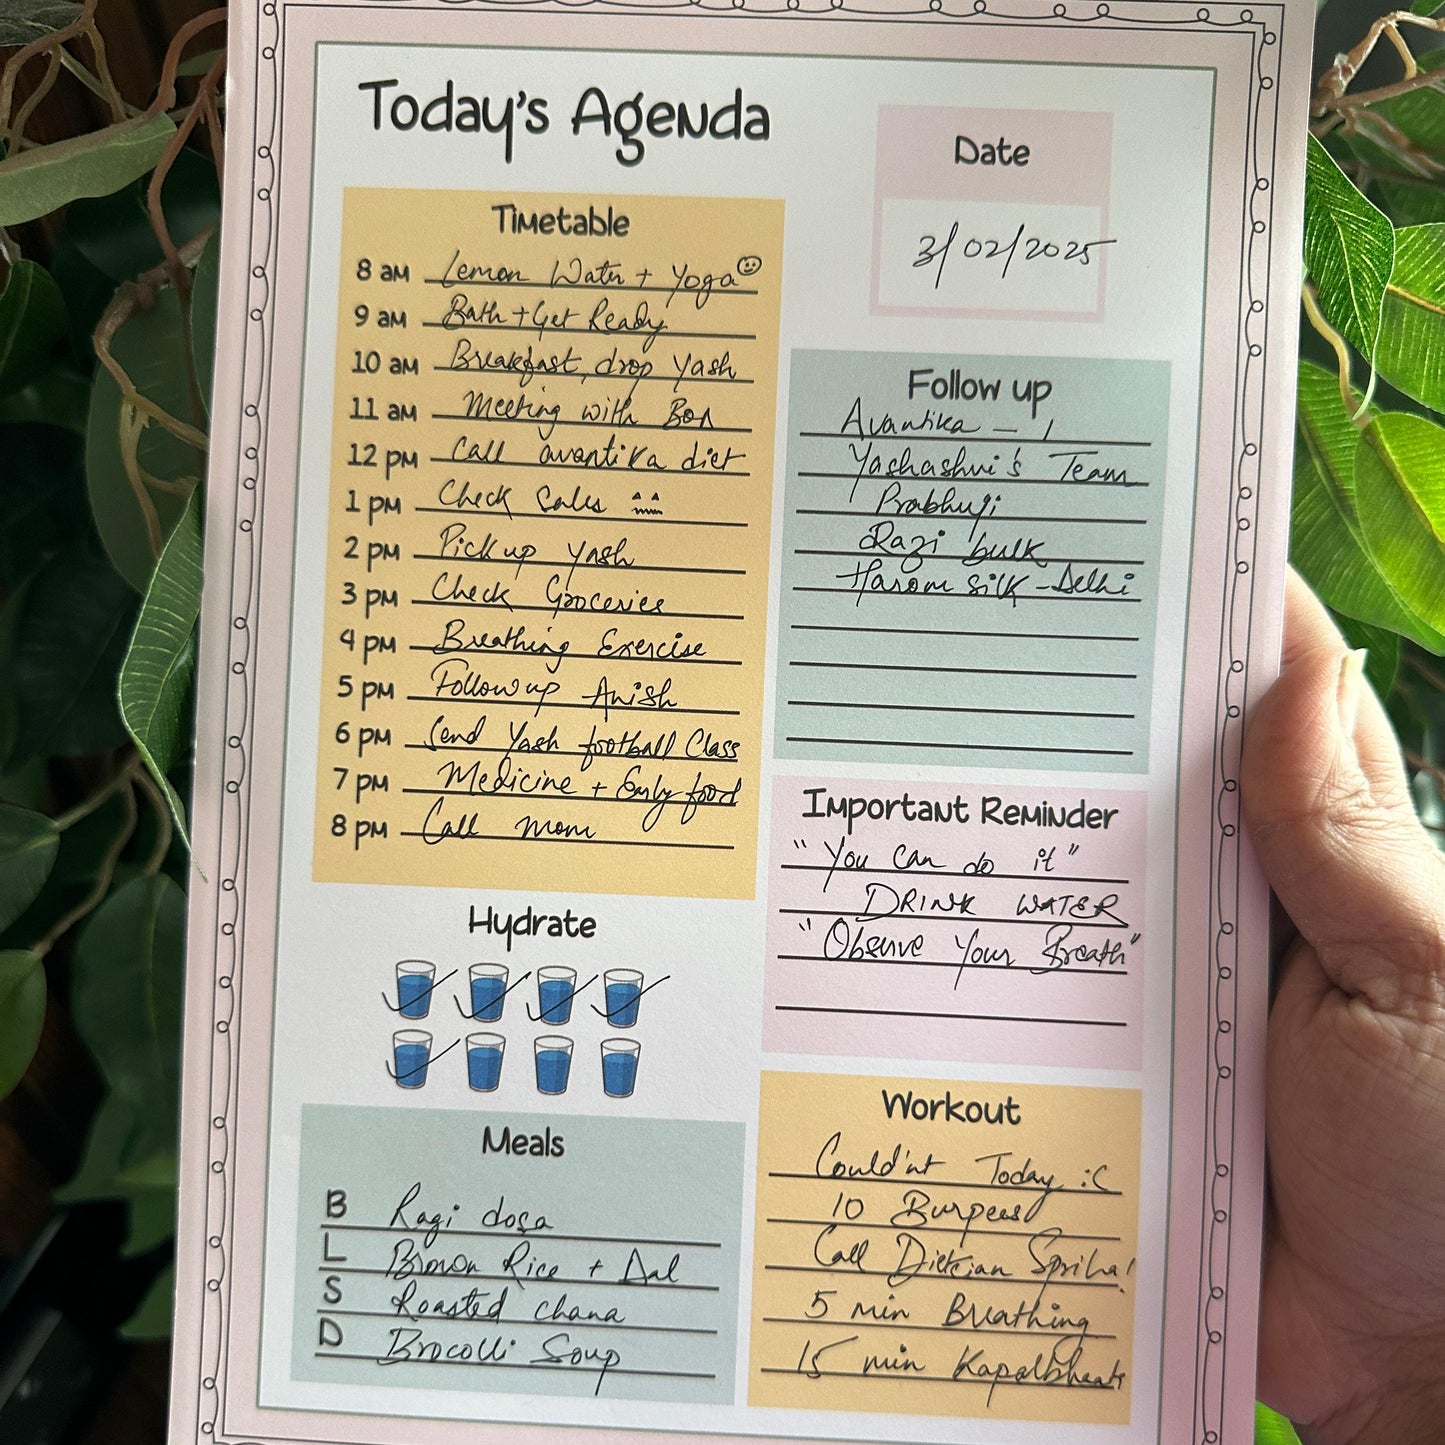 Today's Agenda
Date
3/02/2025
Timetable
8 AM Lemon Water + Yoga
9 AM Bath + Get Ready
10 AM Breakfast, drop Yash
11 AM Meeting with
12 PM Call avantika diet
1 PM Check Sales
2 PM Pick up Yash
3 PM Check Groceries
4 PM Breathing Exercise
5 PM Follow up Anish
6 PM Send Yash football Class
7 PM Medicine + Early food
8 PM Call mom
Follow up
Avantika - 1
Yashashvi's Team
Prabhuji
Razi bulk
silk - Delhi
Important Reminder
"You can do it"
DRINK WATER
"Observe Your Breath"
Hydrate
Meals
B Ragi dosa
L Brown Rice + Dal
S Roasted chana
D Brocolli Soup
Workout
Could'nt Today :C
10 Burpees
Call Dietcian
5 min Breathing
15 min